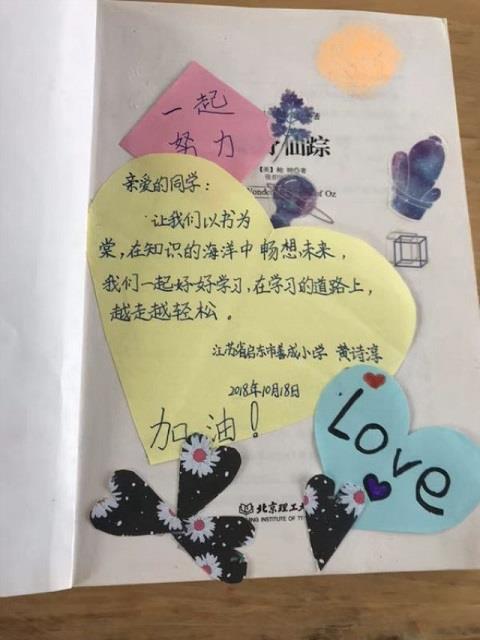 一起
努力
仙踪
of Oz
亲爱的同学：
让我们以书为
棠，在知识的海洋中畅想未来，
我们一起好好学习，在学习的道路上，
越走越轻松。
江苏省启东市善成小学 黄诗淳
2018年10月18日
加油！
Love
北京理工大
ING INSTITUTE OF TE